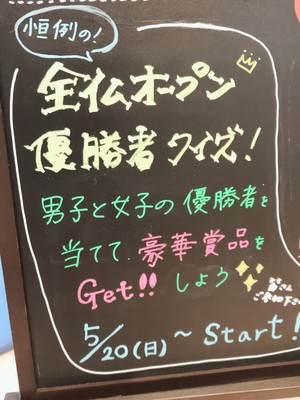 恒例の!
全仏オープン
優勝者クイズ!
男子と女子の優勝者を
当てて、豪華賞品を
Get!! しょう
皆さん
ご参加下さい
5/20(日)~Start!